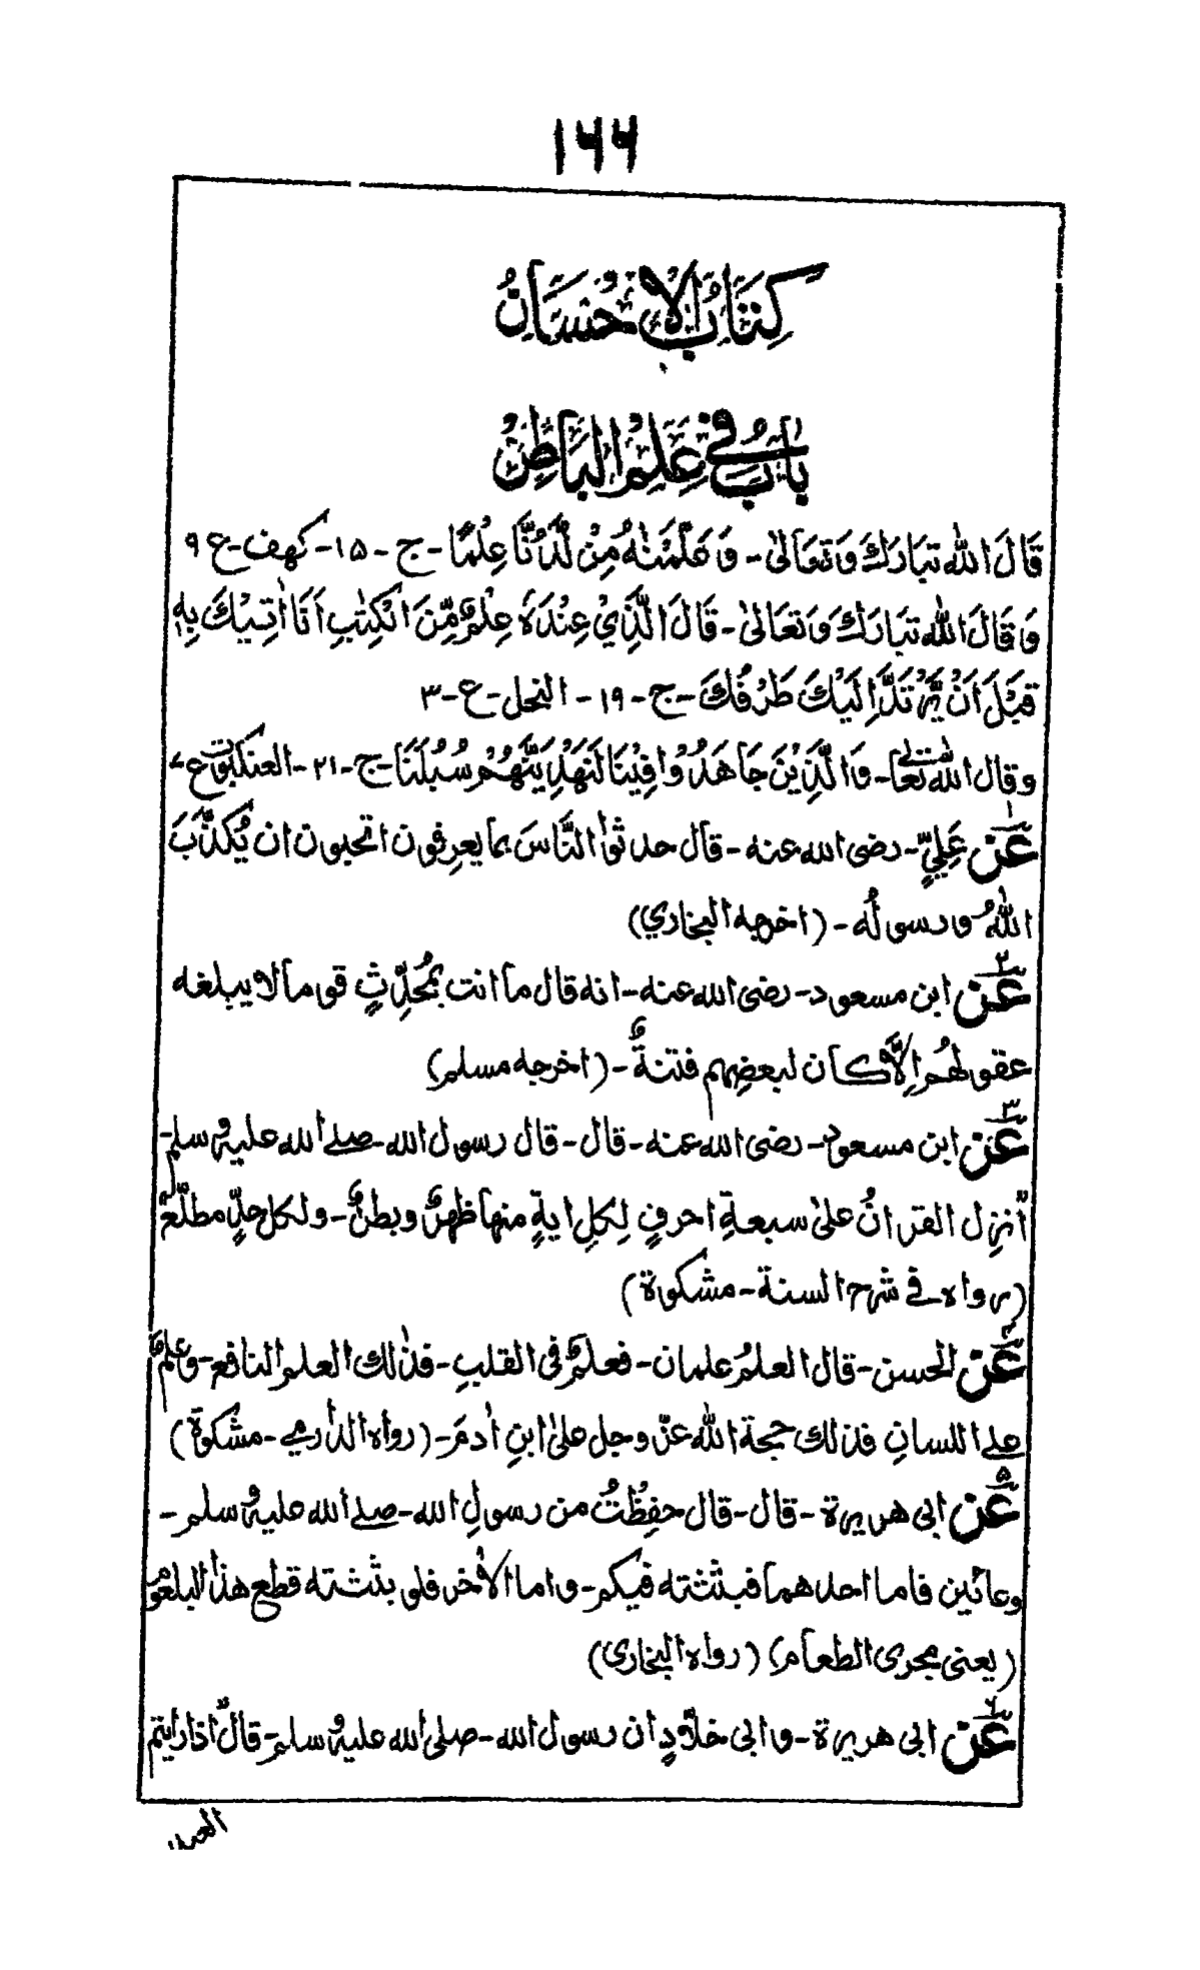 ۱۶۶
كِتَابُ الْاِحْسَانِ
بَابٌ فِي عِلْمِ الْبَاطِنِ
قَالَ اللهُ تَبَارَكَ وَتَعَالىٰ - وَعَلَّمْنٰهُ مِنْ لَّدُنَّا عِلْمًا - ج - ۱۵ - كهف - ع ۹
وَقَالَ اللهُ تَبَارَكَ وَتَعَالىٰ - قَالَ الَّذِيْ عِنْدَهٗ عِلْمٌ مِّنَ الْكِتٰبِ اَنَا اٰتِيْكَ بِهٖ
قَبْلَ اَنْ يَّرْتَدَّ اِلَيْكَ طَرْفُكَ - ج - ۱۹ - النحل - ع - ۳
وقال الله تعالىٰ - وَالَّذِيْنَ جَاهَدُوْا فِيْنَا لَنَهْدِيَنَّهُمْ سُبُلَنَا - ج - ۲۱ - العنكبوت ع ۷
۱ عَن عَلِيٍّ - رضى الله عنه - قال حدثوا النَّاسَ بما يعرِفون اتحبون ان يُكذَّبَ
اللهُ ورسولُه - (اخرجه البخاري)
۲ عَن ابن مسعود - رضى الله عنه - انه قال ما انت بمُحَدِّثٍ قوما لا يبلغه
عقولُهُم اِلَّا كان لبعضِهم فتنةٌ - (اخرجه مسلم)
۳ عَن ابن مسعود - رضى الله عنه - قال - قال رسول الله - صلے الله عليه وسلم -
اُنزِل القراٰنُ علىٰ سبعةِ احرفٍ لِكلِ ايةٍ منها ظهرٌ وبطنٌ - ولكل حدٍّ مطلَّعٌ
(رواه فے شرح السنة - مشكوة)
۴ عَن الحسن - قال العلمُ علمان - فعلمٌ فى القلبِ - فذٰلك العلم النافع - وعلمٌ
علے اللسانِ فذلك حجة اللهِ عزّ وجل علىٰ ابنِ اٰدمَ - (رواه الدارمے - مشكوة)
۵ عَن ابى هريرة - قال - قال حفِظْتُ من رسولِ الله - صلے الله عليه وسلم -
وعائين فاما احدهما فبثثته فيكم - واما الاٰخر فلو بثثته قطع هذا البلعوم
(يعنى مجرى الطعام) (رواه البخارى)
۶ عَن ابى هريرة - وابى خلّادٍ ان رسول الله - صلى الله عليه وسلم - قال اذا رايتم
العبد